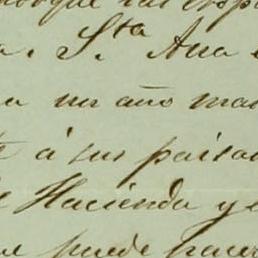 a. Sta Ana
un año mas
á sus paisa
Hacienda y e
puede hacer